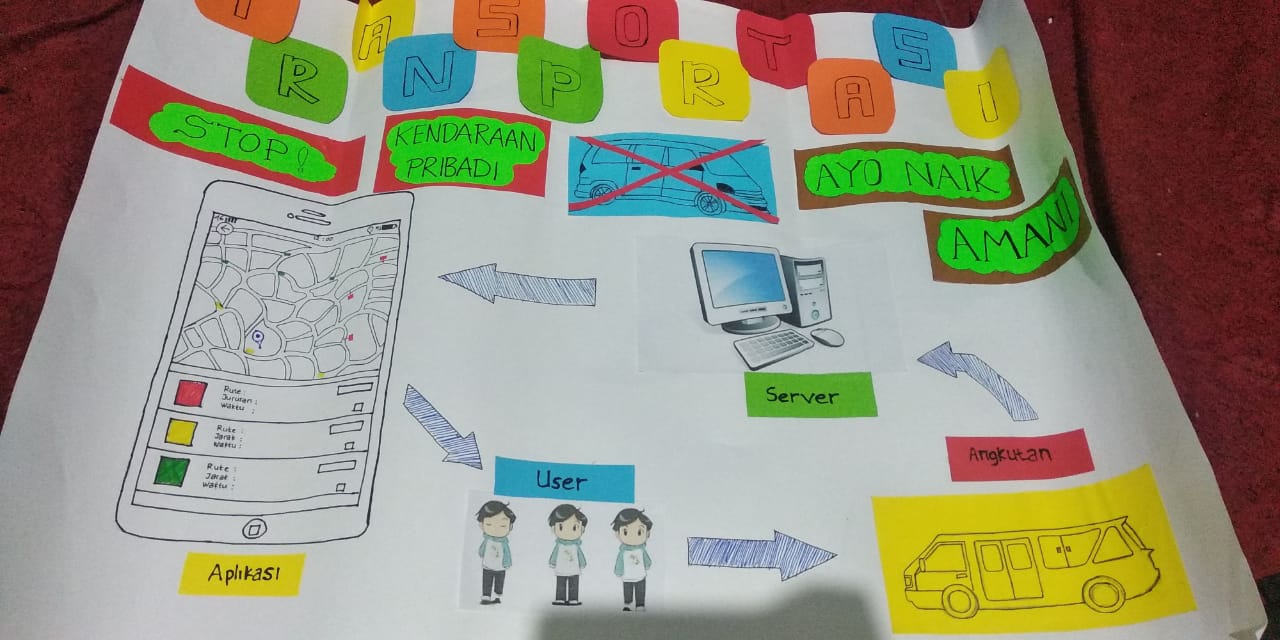 TRANSPORTASI
STOP!
KENDARAAN
PRIBADI
AYO NAIK
AMAN!
Rute :
Waktu :
Rute :
Jarak :
Waktu :
Rute :
Jarak :
Waktu :
Server
Angkutan
User
Aplikasi